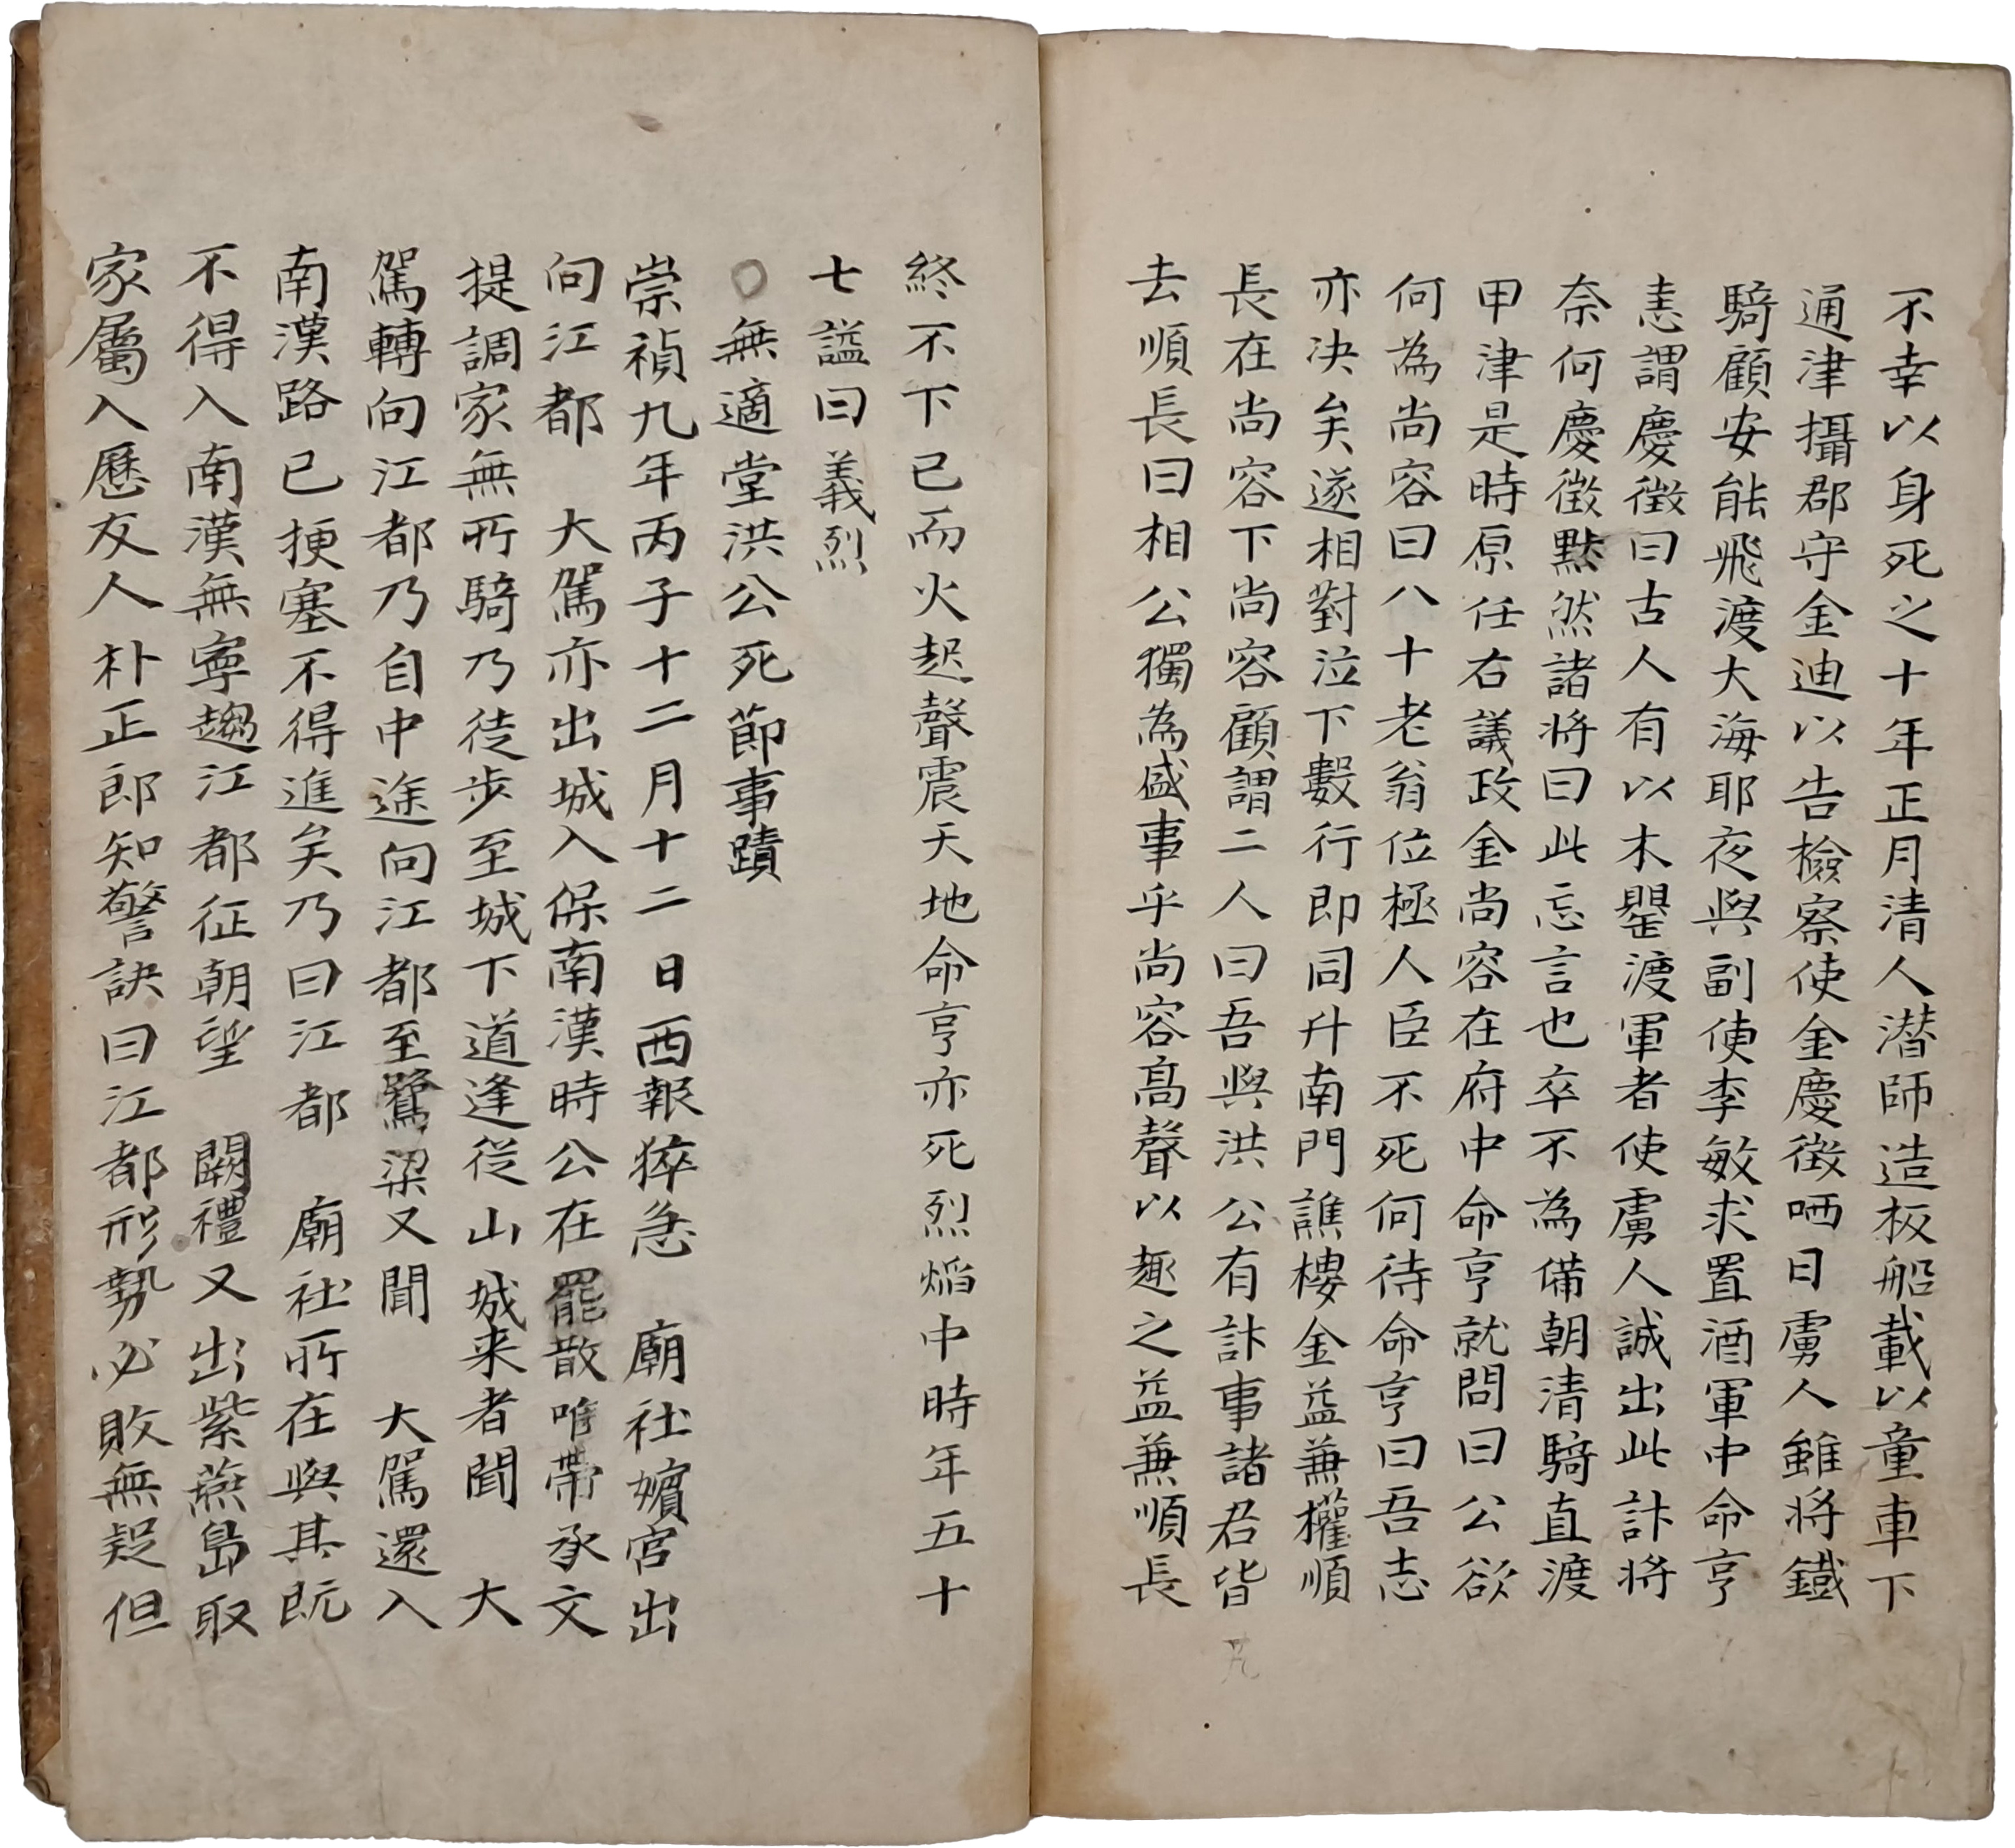 不幸以身死之十年正月清人潛師造板船載以童車下
通津攝郡守金迪以告檢察使金慶徵哂曰虜人雖將鐵
騎顧安能飛渡大海耶夜與副使李敏求置酒軍中命亨
恚謂慶徵曰古人有以木罌渡軍者使虜人誠出此計將
奈何慶徵黙然諸將曰此忘言也卒不為備朝清騎直渡
甲津是時原任右議政金尚容在府中命亨就問曰公欲
何為尚容曰八十老翁位極人臣不死何待命亨曰吾志
亦决矣遂相對泣下數行即同升南門譙樓金益兼權順
長在尚容下尚容顧謂二人曰吾與洪公有計事諸君皆
去順長曰相公獨為盛事乎尚容高聲以趣之益兼順長
終不下已而火起聲震天地命亨亦死烈焰中時年五十
七謚曰義烈
○無適堂洪公死節事蹟
崇禎九年丙子十二月十二日西報猝急 廟社嬪宮出
向江都 大駕亦出城入保南漢時公在罷散唯帶承文
提調家無所騎乃徒步至城下道逢從山城来者聞 大
駕轉向江都乃自中途向江都至鷺梁又聞 大駕還入
南漢路已挭塞不得進矣乃曰江都 廟社所在與其既
不得入南漢無寧趨江都征朝望 闕禮又出紫燕島取
家屬入歷友人朴正郎知警訣曰江都形勢必敗無疑但